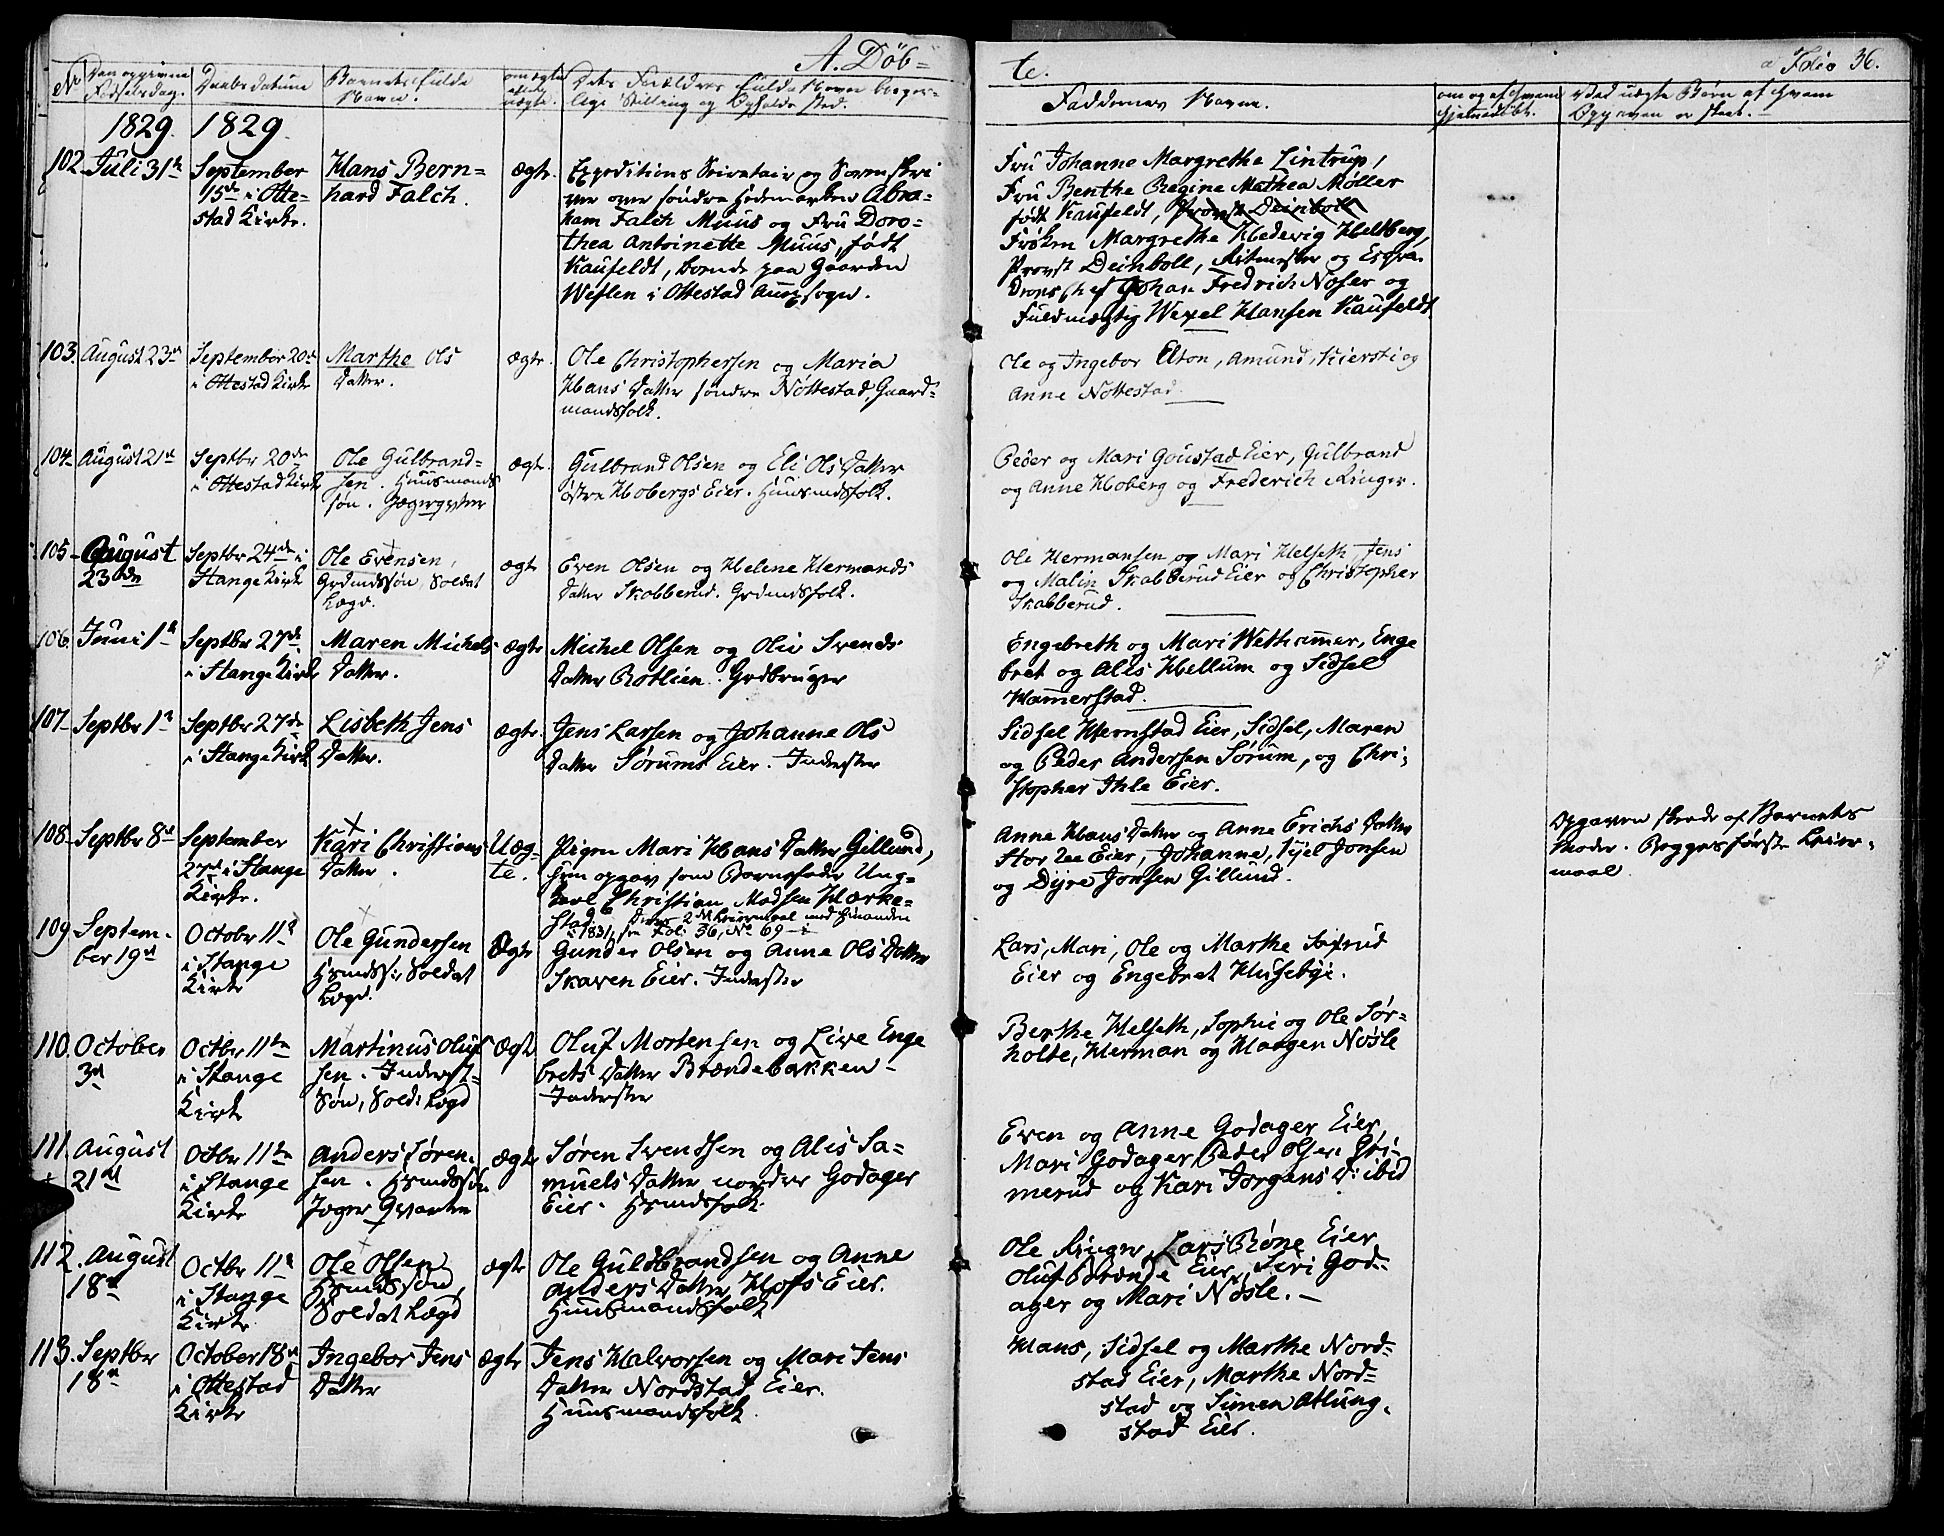 A. Döb-
te.
Folio 36.
No
Den opgivne
Fødselsdag.
Daabs datum
Barnets fulde
Navn.
om ægte
eller
uægte.
Dets Forældres fulde Navne borger-
lige Stilling og Opholds sted.
Faddernes Navne.
om og af hvem
hjemmedöbt.
Ved uægte Børn af hvem
Opgiven er skeet.
1829. 1829.
102. Juli 31te
September
15de i Otte-
stad Kirke.
Hans Bern-
hard Falch.
ægte.
Expeditions Secretair og Sorenskri
ver over söndre Hedemarken Abra-
ham Falch Muus og Fru Doro-
thea Antoinette Muus, født
Kaufeldt, boende paa Gaarden
Weflen i Ottestad Anxsogn.
Fru Johanne Margrethe Lintrup,
Fru Benthe Regine Mathea Møller
født Kaufeldt, Provst Deinboll
Frøken Margrethe Hedevig Heltberg,
Provst Deinboll, Ritmester og Esqva-
drons Chef Johan Fredrich Noser og
Fuldmægtig Wexel Hansen Kaufeldt
103. August 23de
September 20de
i Ottestad Kirke
Marthe Ols
Datter.
ægte.
Ole Christophersen og Maria
Hans Datter söndre Nöttestad, Gaard-
mandsfolk.
Ole og Ingebor Elton, Amund, Kiersti og
Anne Nöttestad.
104. August 21de
Septbr 20de
i Ottestad Kirke
Ole Gulbrand-
sen. Huusmands
søn.
ægte.
Gulbrand Olsen og Eli Ols Datter
östre Hobergs Eier. Huusmdsfolk.
Peder og Mari Goustad Eier, Gulbrand
og Anne Hoberg og Frederich Ringer.
105. August
23de
Septbr 24de i
Stange Kirke
Ole Evensen,
Grdmdssøn, Soldat
Lægd.
ægte
Even Olsen og Helene Hermands
Datter Skobberud. Grdmdsfolk.
Ole Hermansen og Mari Helseth, Jens
og Malin Skabberud Eier og Christopher
Skabberud.
106. Juni 1te
Septbr 27de
i Stange Kirke
Maren Michels
Datter.
ægte
Michel Olsen og Olie Svends
Datter Rotlien. Grdbruger
Engebreth og Mari Wethammer, Enge
bret og Alis Hellum og Sidsel
Hamerstad.
107. Septbr 1te
Septbr 27de
i Stange Kirke
Lisbeth Jens
Datter.
ægte.
Jens Larsen og Johanne Ols
Datter Sörums Eier. Inderster
Sidsel Hernstad Eier, Sidsel, Maren
og Peder Andersen Sörum, og Chri-
stopher Ihle Eier.
108. Septbr 8de
September
27de i Stange
Kirke.
Kari Christians
Datter.
Uæg-
te.
Pigen Mari Hans Datter Gillund,
hun opgav som Barnefader Ung-
karl Christian Madsen Hærke-
stad. Deres 2det Leiermaal med hinanden
i 1831, see Foli 36, No 69
Anne Hans Datter og Anne Erichs Datter
Stor Eier, Johanne, Kjel Jonsen
og Dyre Jonsen Gillund.
Opgaven skeede af Barnets
Moder. Begges første Leier-
maal.
109 Septem-
ber 19de
Octobr 11te
i Stange
Kirke
Ole Gundersen
Hsmdss: Soldat
Lægd.
Ægte
Gunder Olsen og Anne Ols Datter
Skaven Eier. Inderster
Lars, Mari, Ole og Marthe Saxrud
Eier og Engebret Husebye.
110. October
3de
Octbr 11te
i Stange
Kirke
Martinus Oluf
sen. Inderst-
Søn, Sold: Lægd
Ægte
Oluf Mortensen og Live Enge
brets Datter Brændebakken-
Inderster
Berthe Helseth, Sophie og Ole Sör-
holte, Herman og Haagen Nösle
111. August
21de
Octbr 11te
i Stange
Kirke
Anders Sören-
sen. Hsmdssøn
Jæger Qvarteer
ægte
Sören Svendsen og Alis Sa-
muels Datter nordre Godager
Eier. Hsmdsfolk
Even og Anne Godager Eier,
Mari Godager, Peder Olsen Gri-
merud og Kari Jörgens D: ibid
112. August
18de
Octbr 11te
i Stange
Kirke
Ole Olsen
Hsmdssøn,
Soldat Lægd
ægte
Ole Guldbrandsen og Anne
Anders Datter, Hofs Eier.
Huusmandsfolk
Ole Ringer, Lars Röne Eier
Oluf Brænde Eier, Siri God-
ager og Mari Nösle.-
113. Septbr
18de
October 18de
i Ottestad
Kirke
Ingebor Jens
Datter
ægte
Jens Halvorsen og Mari Jens
Datter Nordstad Eier.
Huusmandsfolk.
Hans, Sidsel og Marthe Nord-
stad Eier, Marthe Nord-
stad og Simen Atlung-
stad Eier.